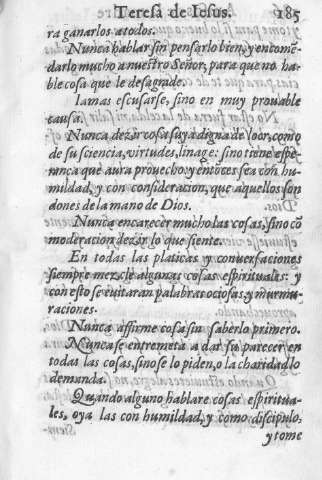 Teresa de Iesus. 185
ra ganarlos a todos.
Nunca hablar sin pensarlo bien, y encome-
darlo mucho a nuestro Señor, para que no ha-
ble cosa que le desagrade.
Iamas escusarse, sino en muy prouable
causa.
Nunca dezir cosa suya digna de loor, como
de su sciencia, virtudes, linage: sino tiene espe-
rança que aura prouecho: y entõces sea con hu-
mildad, y con consideracion, que aquellos son
dones de la mano de Dios.
Nunca encarecer mucho las cosas, sino cõ
moderacion dezir lo que siente.
En todas las platicas y conuersaciones
siempre mezcle algunas cosas espirituales: y
con esto se euitaran palabras ociosas, y murmu-
raciones.
Nunca affirme cosa sin saberlo primero.
Nunca se entremeta a dar su parecer en
todas las cosas, sino se lo piden, o la charidad lo
demanda.
Quando alguno hablare cosas espiritua-
les, oya las con humildad, y como discipulo,
y tome